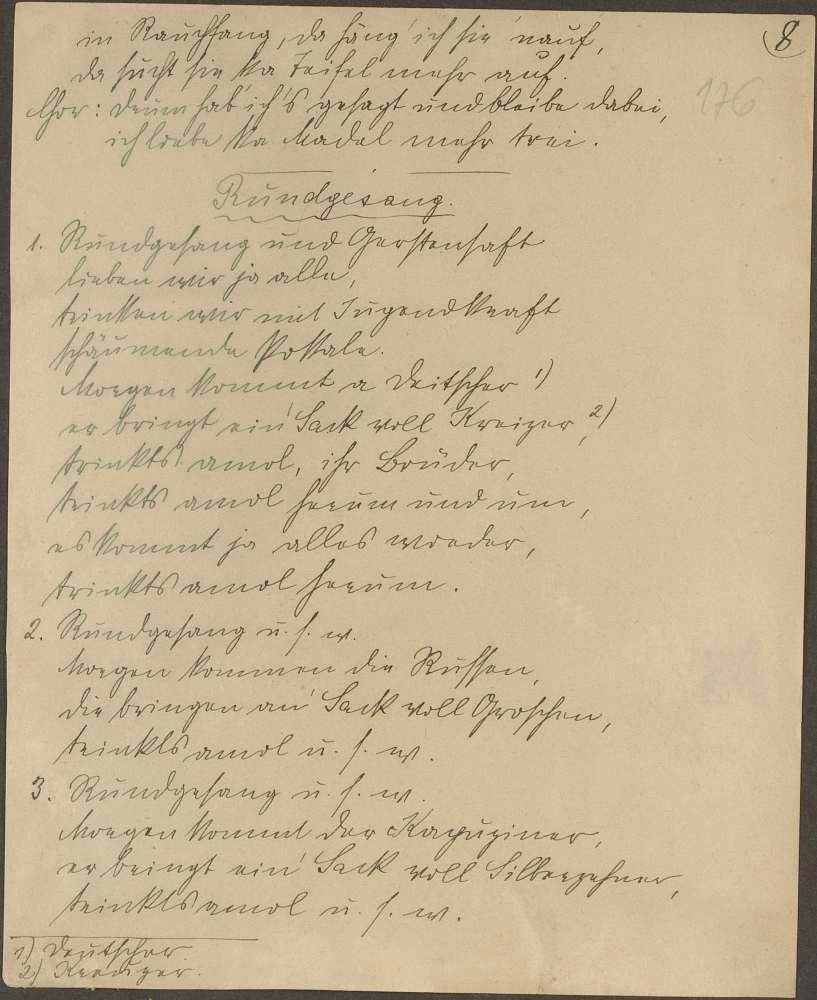 8
176
in Rauchfang, da häng' ich sie 'nauf,
da sucht sie ka Teifel mehr auf.
Chor: Drum hab' ich's gesagt und bleibe dabei,
ich liebe ka Madel mehr trei.
Rundgesang.
1. Rundgesang und Gerstensaft
lieben wir ja alle,
trinken wir mit Jugendkraft
schäumende Pokale.
Morgen kommt a Deitscher 1)
er bringt ein' Sack voll Kreizer, 2)
trinkts amol, ihr Brüder,
trinkts amol herum und um,
es kommt ja alles wieder,
trinkts amol herum.
2. Rundgesang u. s. w.
Morgen kommen die Russen,
die bringen an' Sack voll Groschen,
trinkts amol u. s. w.
3. Rundgesang u. s. w.
Morgen kommt der Kapuziner,
er bringt ein' Sack voll Silberzehner,
trinkts amol u. s. w.
1) Deutscher.
2) Kreuzer.